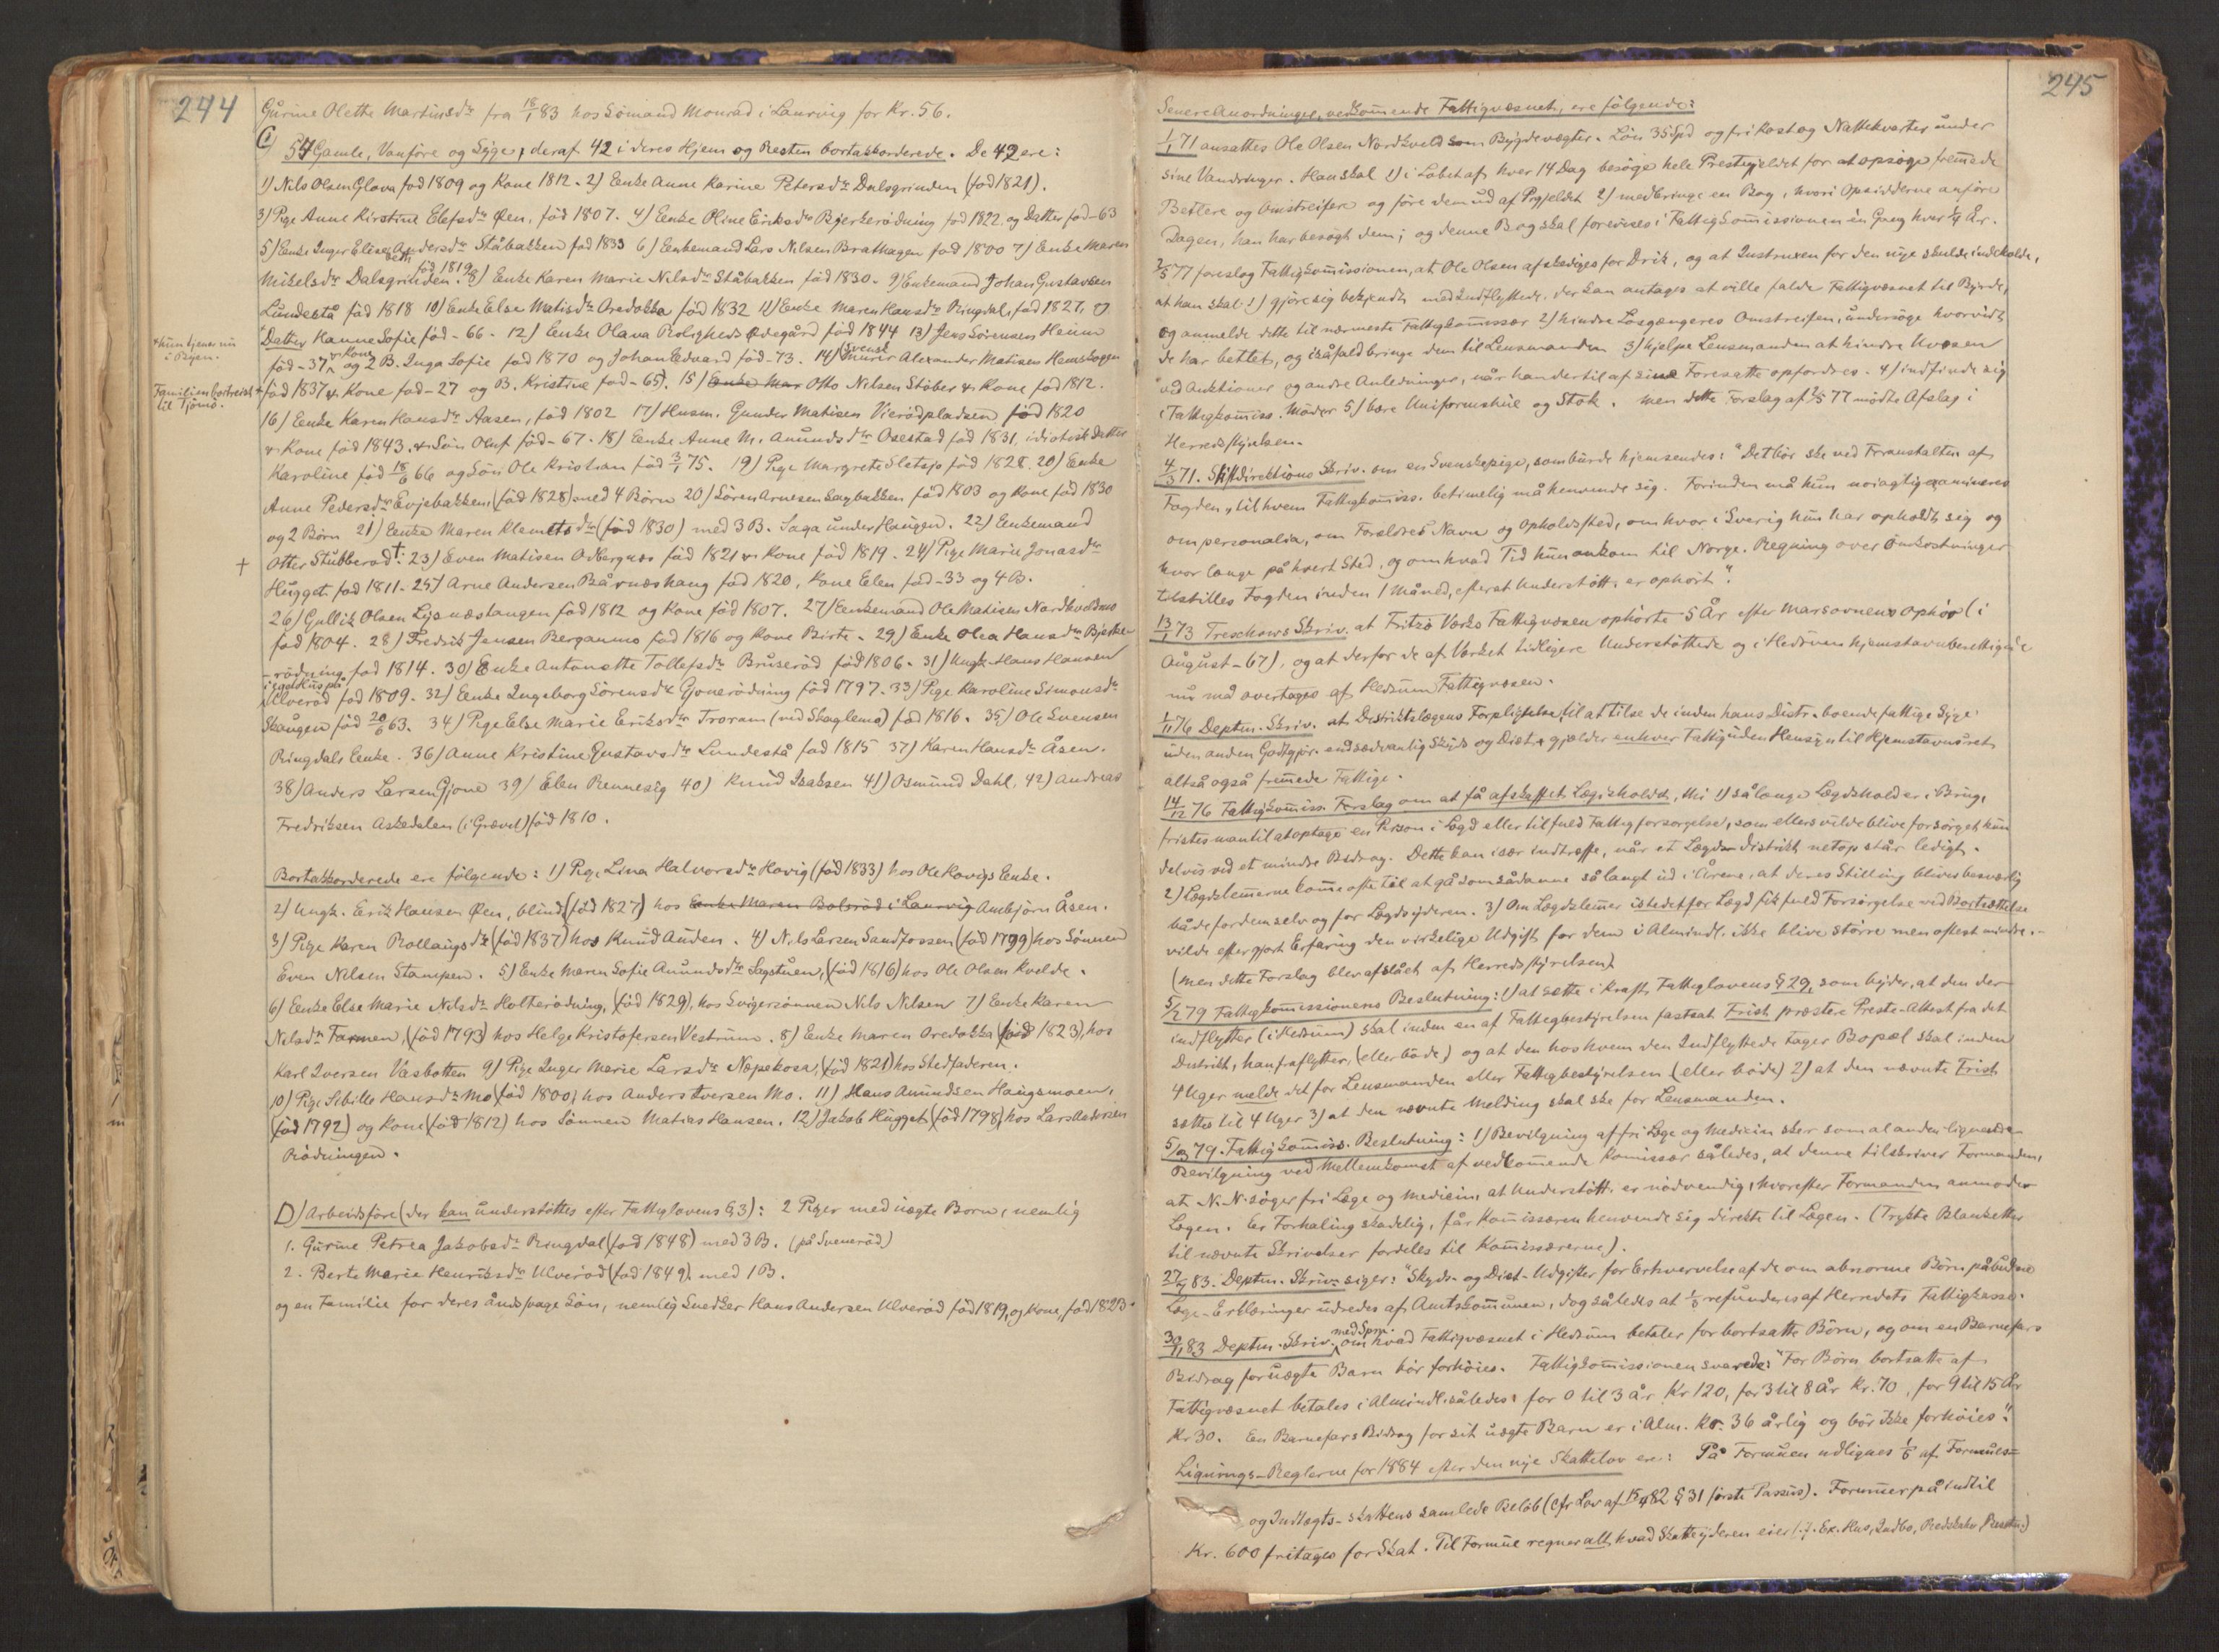 244
Gurine Olette Martinsdr fra 18/1 83 hos Sömand Monrad i Laurvig for Kr. 56.
C) 54 Gamle, Vanföre og Syge, deraf 42 i deres Hjem og Resten bortakkorderede. De 42 ere:
1) Nils Olsen Glova föd 1809 og Kone 1812. 2) Enke Anne Karine Petersdr Dalsgrinden (föd 1821).
3) Pige Anne Kirstine Elefsdr Öen, föd 1807. 4) Enke Oline Eriksdr Bjerkerödning föd 1822. og Datter föd -63
5) Enke Inger Elise Andersdr Ståbakken föd 1833 6) Enkemand Lars Nilsen Brathagen föd 1800 7) Enke Maren
Mikelsdr Dalsgrinden. föd 1819 8) Enke Karen Marie Nilsdr Ståbakken föd 1830. 9) Enkemand Johan Gustavsen
Lundestå föd 1818 10) Enke Else Matisdr Oredokka föd 1832 11) Enke Maren Hansdr Ringdal, föd 1827, og
+hun tjener nu i Byen.
Datter Hanne Sofie föd -66. 12) Enke Olava Roligheds Ödegård föd 1844 13) Jens Sörensen Heum
föd -37 + Kone og 2 B. Inga Sofie föd 1870 og Johan Edvard föd -73. 14) Svensk Murer Alexander Matisen Hemskogen
Familien bortreist til Tjömö.
föd 1837 + Kone föd -27 og B. Kristine föd -65). 15) Enke Mar Otto Nilsen Stöber + Kone föd 1812.
16) Enke Karen Hansdr Aasen, föd 1802 17) Husm. Gunder Matisen Vierödpladsen föd 1820
+ Kone föd 1843. + Sön Oluf föd -67. 18) Enke Anne M. Anundsdr Osestad föd 1831, idiotisk Datter
Karoline föd 18/6 66 og Sön Ole Kristian föd 3/1 75. 19) Pige Margrete Sletsjö föd 1828. 20) Enke
Anne Pedersdr Evjebakken (föd 1828) med 4 Börn 20) Sören Arnesen Sagbakken föd 1803 og Kone föd 1830
og 2 Börn 21) Enke Maren Klemetsdr (föd 1830) med 3 B. Saga under Haugen. 22) Enkemand
+
Otter Stubberöd †. 23) Even Matisen Odbergnes föd 1821 + Kone föd 1819. 24) Pige Marie Jonasdr
Hugget föd 1811. 25) Arne Andersen Bårnæshaug föd 1820, Kone Elen föd -33 og 4 B.
26) Gullik Olsen Lysnæstangen föd 1812 og Kone föd 1807. 27) Enkemand Ole Matisen Nordkveldmo
föd 1804. 28) Fredrik Jensen Berganmo föd 1816 og Kone Birte. 29) Enke Olea Hansdr Bjerke-
-rödning föd 1814. 30) Enke Antonette Tollefsdr Bruseröd föd 1806. 31) Ungk. Hans Hansen
i eget Hus på Ulveröd föd 1809. 32) Enke Ingeborg Sörensdr Gjonerödning föd 1797. 33) Pige Karoline Simonsdr
Skaugen föd 20/6 63. 34) Pige Else Marie Eriksdr Troram (ved Skaglemo) föd 1816. 35) Ole Svensen
Ringdals Enke. 36) Anne Kristine Gustavsdr Lundestå föd 1815 37) Karen Hansdr Åsen.
38) Anders Larsen Gjone 39) Elen Rennesig 40) Knud Isaksen 41) Osmund Dahl. 42) Andreas
Fredriksen Askedalen (i Grævet) föd 1810.
Bortakkorderede ere fölgende: 1) Pige Lina Halvorsdr Hovig (föd 1833) hos Ole Hovigs Enke.
2) Ungk. Erik Hansen Öen, blind (föd 1827) hos Enke Maren Bolsröd i Laurvig Ambjörn Åsen.
3) Pige Karen Rollaugsdr (föd 1837) hos Knud Auden. 4) Nils Larsen Sandfossen (föd 1799) hos Sönnen
Even Nilsen Stampen. 5) Enke Maren Sofie Anundsdr Sagstuen, (föd 1816) hos Ole Olsen Kvelde.
6) Enke Else Marie Nilsdr Holterödning, (föd 1829), hos Svigersönnen Nils Nilsen 7) Enke Karen
Nilsdr Farmen, (föd 1793) hos Helge Kristofersen Vestrum. 8) Enke Maren Oredokka (föd 1823), hos
Karl Iversen Vasbotten 9) Pige Inger Marie Larsdr Næpekosa, (föd 1821) hos Stedfaderen.
10) Pige Sibille Hansdr Mo (föd 1800) hos Anders Iversen Mo. 11) Hans Amundsen Haugsmoen,
(föd 1792) og Kone (föd 1812) hos Sönnen Matias Hansen. 12) Jakob Hugget (föd 1798) hos Lars Andersen
Rödningen.
D) Arbeidsföre (der kan understöttes efter Fattiglovens § 3): 2 Piger med uægte Börn, nemlig
1. Gurine Petrea Jakobsdr Ringdal (föd 1848) med 3 B. (på Sveneröd)
2. Berte Marie Henriksdr Ulveröd (föd 1849) med 1 B.
og en Familie for deres åndsvage Sön, nemlig Snedker Hans Andersen Ulveröd föd 1819, og Kone, föd 1823.
245
Senere Anordninger, vedkommende Fattigvæsnet, ere fölgende:
1/1 71 ansattes Ole Olsen Nordkveld som Bygdevægter. Lön 35 Spd og fri Kost og Nattekvarter under
sine Vandringer. Han skal 1) i Löbet af hver 14 Dag besöge hele Prestegjeldet for at opsöge fremede
Betlere og Omstreifere og före dem ud af Prgjeldet 2) medbringe en Bog, hvori Opsidderne anföre
Dagen, han har besögt dem; og denne Bog skal forevises i Fattigkommissionen en Gang hver ¼ År.
2/5 77 foreslog Fattigkommissionen, at Ole Olsen afskediges for Drik, og at Instruxen for den nye skulde indeholde,
at han skal: 1) gjöre sig bekjendt med Indflyttede, der kan antages at ville falde Fattigvæsnet til Byrde,
og anmelde dette til nærmeste Fattigkommissær 2) hindre Lösgængeres Omstreifen, undersöge hvorvidt
de har bettlet, og isåfald bringe dem til Lensmanden 3) hjelpe Lensmanden at hindre Uvæsen
ved Auktioner og andre Anledninger, når han dertil af sine Foresatte opfordres. 4) indfinde sig
i Fattigkommiss. Möder 5) bære Uniformshue og Stok. Men dette Forslag af 2/5 77 mödte Afslag i
Herredsstyrelsen.
4/3 71. Stiftdirektions Skriv. om en Svenskepige, som burde hjemsendes: "Det bör ske ved Foranstalten af
Fogden, til hvem Fattigkommiss. betimelig må henvende sig. Forinden må hun nöiagtig examineres
om personalia, om Forældres Navn og Opholdssted, om hvor i Sverig hun har opholdt sig og
hvor længe på hvert Sted, og om hvad Tid hun ankom til Norge. Regning over Omkostninger
tilstilles Fogden inden 1 Måned, efterat Understött. er ophört".
13/1 73 Treschows Skriv. at Fritzö Værks Fattigvæsen ophörte 5 År efter Marsovnens Ophör (i
August -67), og at derfor de af Værket tidligere Understöttede og i Hedrum hjemstavnsberettigede
nu må overtages af Hedrum Fattigvæsen.
1/11 76 Deptm. Skriv. at Distriktslægens Forpligtelse til at tilse de inden hans Distr. boende fattige Syge
uden anden Godtgjör. end sædvanlig Skyds og Diæt, gjælder enhver Fattig uden Hensyn til Hjemstavnsret,
altså også fremede Fattige.
14/12 76 Fattigkommiss. Forslag om at få afskaffet Lægdsholdet, thi 1) så længe Lægdshold er i Brug,
fristes man til at optage en Person i Lægd eller til fuld Fattigforsörgelse, som ellers vilde blive forsörget kun
delvis ved et mindre Bidrag. Dette kan især indtræffe, når et Lægds-distrikt netop står ledigt.
2) Lægdslemmerne komme ofte til at gå som sådanne så langt ud i Årene, at deres Stilling bliver besværlig
både for dem selv og for Lægdsyderen. 3) Om Lægdslemmer istedetfor Lægd fik fuld Forsörgelse ved Bortsættelse
vilde efter gjort Erfaring den virkelige Udgift for dem i Almindl. ikke blive större men oftest mindre.
(Men dette Forslag blev afslået af Herredsstyrelsen).
5/2 79 Fattigkommissionens Beslutning: 1) at sætte i Kraft Fattiglovens § 29, som byder, at den der
indflytter (i Hedrum) skal inden en af Fattigbestyrelsen fastsat Frist præstere Preste-Attest fra det
Distrikt, han fraflytter, (eller böde) og at den hos hvem den Indflyttede tager Bopæl skal inden
4 Uger melde det for Lensmanden eller Fattigbestyrelsen (eller böde) 2) at den nævnte Frist
sættes til 4 Uger 3) at den nævnte Melding skal ske for Lensmanden.
79. Fattigkommiss. Beslutning: 1) Bevilgning af fri Læge og Medicin sker som al anden lignende
Bevilgning ved Mellemkomst af vedkommende Kommissær således, at denne tilskriver Formanden,
at N. N. söger fri Læge og Medicin, at Understött. er nödvendig, hvorefter Formanden anmoder
Lægen. Er Forhaling skadelig, får Kommissæren henvende sig direkte til Lægen. (Trykte Blanketter
til nævnte Skrivelser fordeles til Kommissærerne).
83. Deptm. Skriv. siger: "Skyds- og Diæt-Udgifter for Erhvervelse af de om abnorme Börn påbudne
Læge-Erklæringer udredes af Amtskommunen, dog således at refunderes af Herredets Fattigkasse.
83 Deptm. Skriv. med Spm. om hvad Fattigvæsnet i Hedrum betaler for bortsatte Börn, og om en Barnefars
Bidrag for uægte Barn bör forhöies. Fattigkommissionen svarede: "For Börn bortsatte af
Fattigvæsnet betales i Almindl. således: for 0 til 3 år Kr 120, for 3 til 8 År Kr. 70, for 9 til 15 År
Kr 30. En Barnefars Bidrag for sit uægte Barn er i Alm. Kr. 36 årlig og bör ikke forhöies".
Lignings-Reglerne for 1884 efter den nye Skattelov ere: På Formuen udlignes af Formues-
og Indtægts-skattens samlede Belöb (cfr Lov af 15/4 82 § 31 förste Passus). Formuer på indtil
Kr. 600 fritages for Skat. Til Formue regnes alt, hvad Skatteyderen eier (f. Ex. Hus, Indbo, Redskaber)